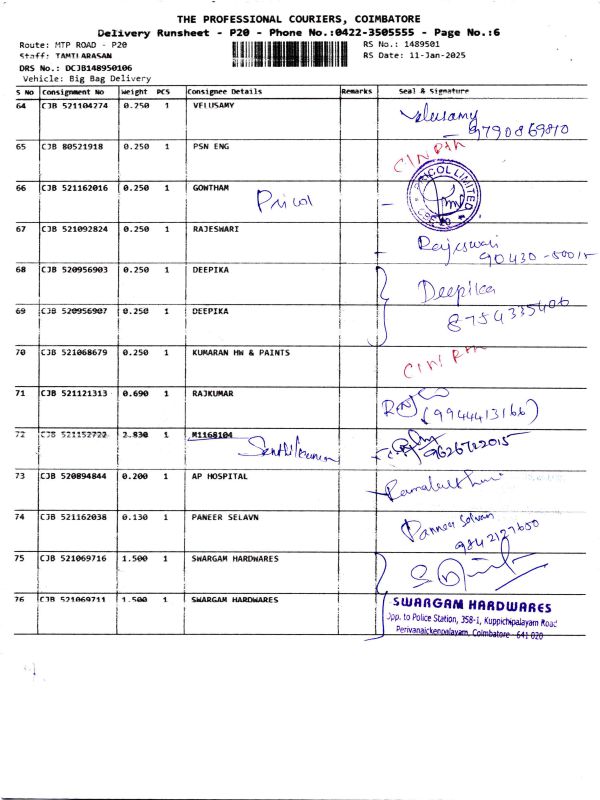 THE PROFESSIONAL COURIERS, COIMBATORE
Delivery Runsheet - P20 - Phone No.:0422-3505555 - Page No.:6
Route: MTP ROAD - P20 RS No.: 1489501
Staff: TAMILARASAN RS Date: 11-Jan-2025
DRS No.: DCJB148950106
Vehicle: Big Bag Delivery
S No Consignment No Weight PCS Consignee Details Remarks Seal & Signature
64 CJB 521104274 0.250 1 VELUSAMY Velusamy
9790869810
65 CJB 80521918 0.250 1 PSN ENG
66 CJB 521162016 0.250 1 GOWTHAM Pricol PRICOL LIMITED
67 CJB 521092824 0.250 1 RAJESWARI Rajeswari
90430-50015
68 CJB 520956903 0.250 1 DEEPIKA Deepika
69 CJB 520956907 0.250 1 DEEPIKA 8754335406
70 CJB 521068679 0.250 1 KUMARAN HW & PAINTS
71 CJB 521121313 0.690 1 RAJKUMAR (9944413166)
72 CJB 521152722 2.830 1 M1168104
73 CJB 520894844 0.200 1 AP HOSPITAL
74 CJB 521162038 0.130 1 PANEER SELAVN Panneer Selvan
9842127650
75 CJB 521069716 1.500 1 SWARGAM HARDWARES
76 CJB 521069711 1.500 1 SWARGAM HARDWARES SWARGAM HARDWARES
Opp. to Police Station, 358-1, Kuppichipalayam Road
Perivanaickenpalayam, Coimbatore - 641 020